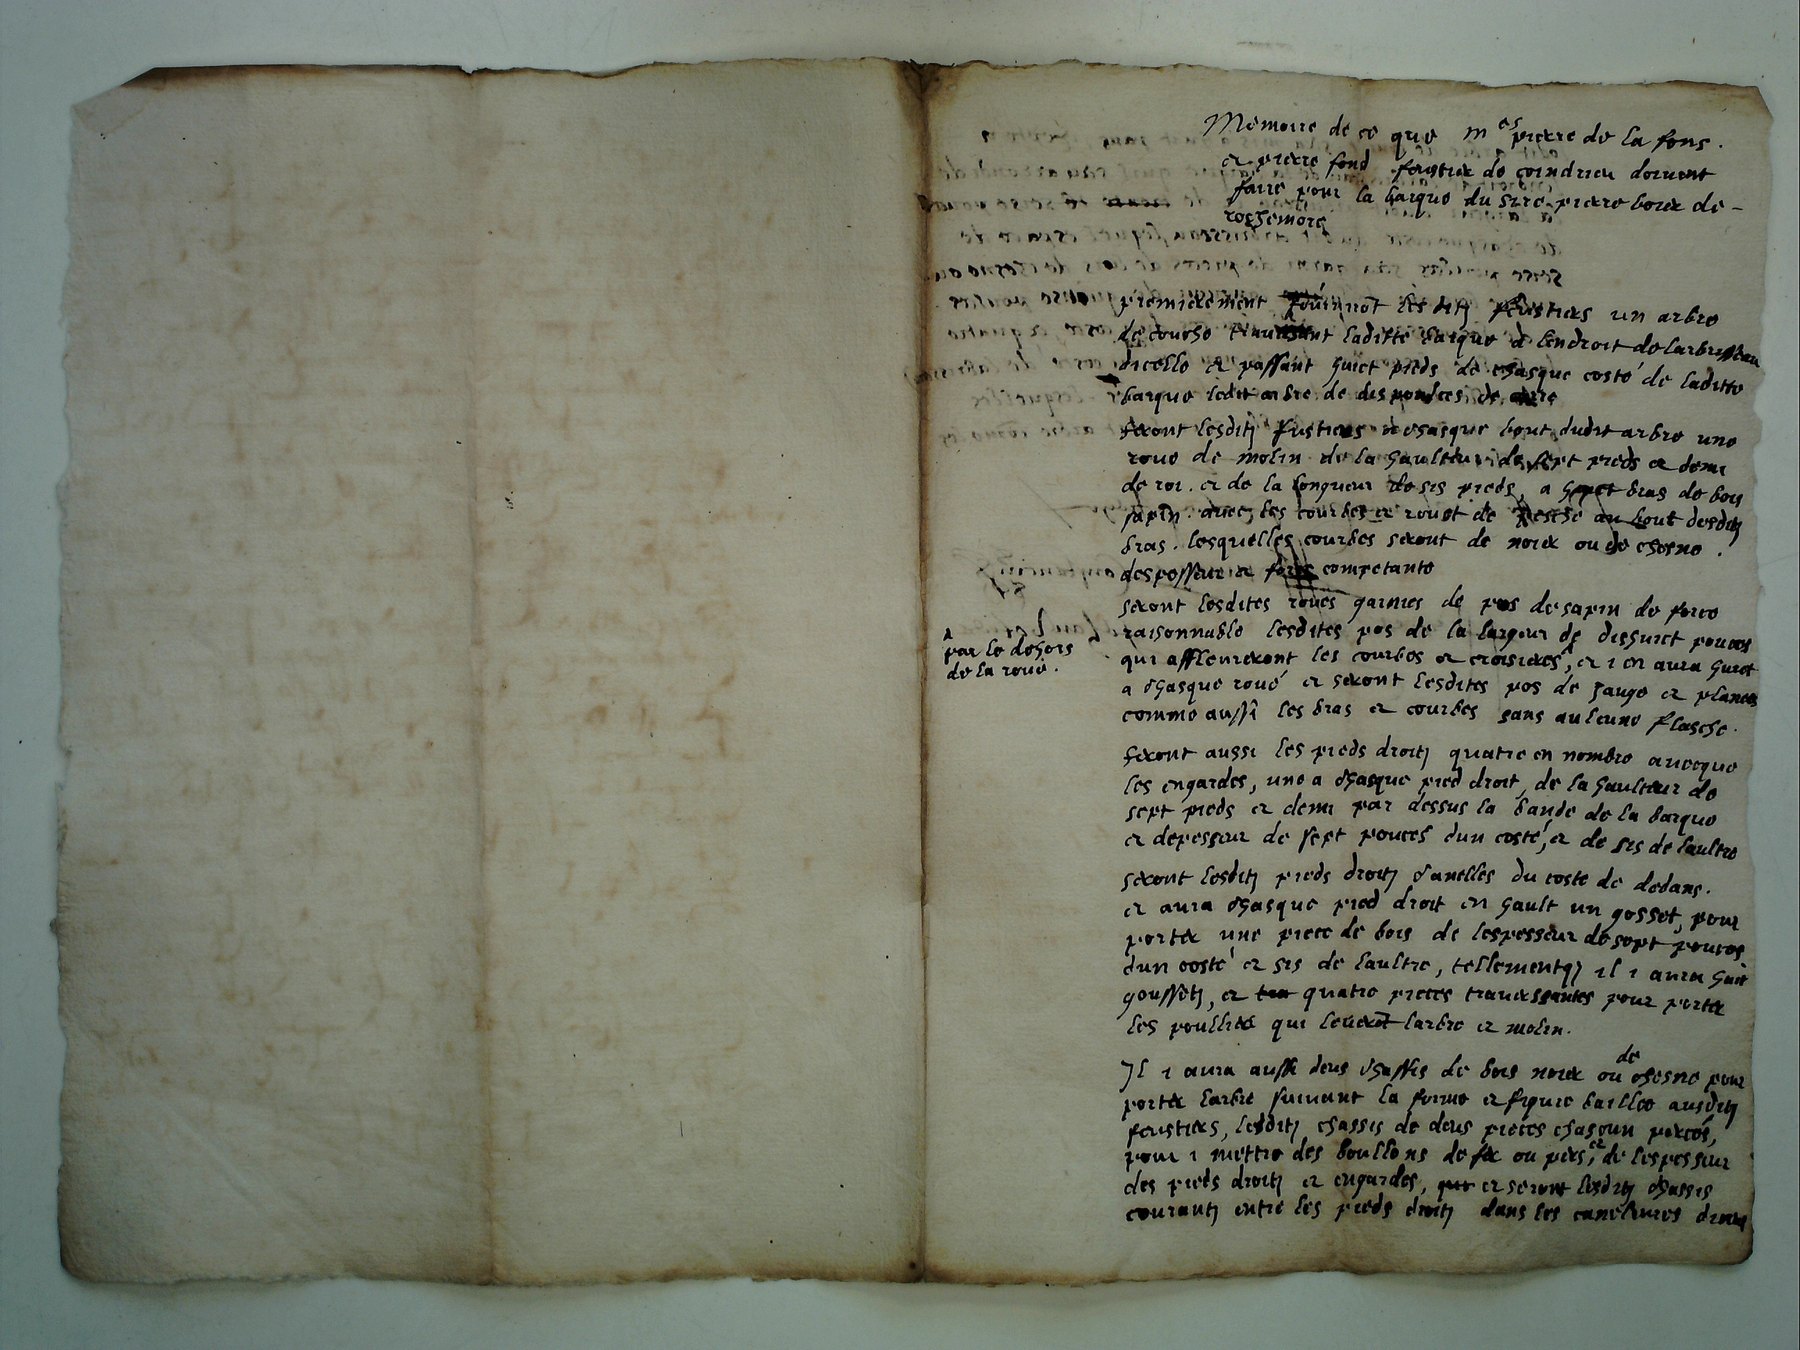 Memoire de ce que mes pierre de la fons.
et pierre fond feustier de coindrieu doivent
faire pour la barque du sire pierre boier de -
premierement fourniront lesditz feustiers un arbre
de couche traversant laditte barque a lendroit de larbresseau
dicelle et passant huict pieds de chasque costé de laditte
barque ledit arbre de dis pouces de
feront lesditz fustiers a chasque bout dudit arbre une
roue de molin de la haulteur de sept pieds et demi
de roi. et de la longueur de sis pieds, a huict bras de bois
sapin avec les courbes et rouet de au bout desditz
bras. lesquelles courbes seront de noier ou de chesne.
despesseur et force competante
seront lesdites roues garnies de pos de sapin de force
raisonnable lesdites pos de la largeur de dishuict pouces
qui affleureront les courbes et croisieres^, et i en aura huict
^
par le dehors
de la roue.
a chasque roué et seront lesdites pos de jauge et planees
comme aussi les bras et courbes sans aulcune flasche.
feront aussi les pieds droitz quatre en nombre avecque
les engardes, une a chasque pied droit, de la haulteur de
sept pieds et demi par dessus la bande de la barque
et depesseur de sept pouces dun costé, et de sis de laultre
seront lesditz pieds droitz canelles du coste de dedans.
et aura chasque pied droit en hault un gosset, pour
porter une piece de bois de lespesseur de sept pouces
dun costé et sis de laultre, tellement q il i aura huit
goussetz, et tra quatre pieces traverssantes pour porter
les poullies qui leveront larbre et molin.
Il i aura aussi deus chassis de bois noier ou de chesne pour
porter larbre suivant la forme et figure baillee ausditz
feustiers, lesditz chassis de deus pieces chascun perces,
pour i mettre des boullons de fer ou pies, et de lespesseur
des pieds droitz et engardes, que et seront lesditz chassis
courantz entre les pieds droitz dans les caneleures